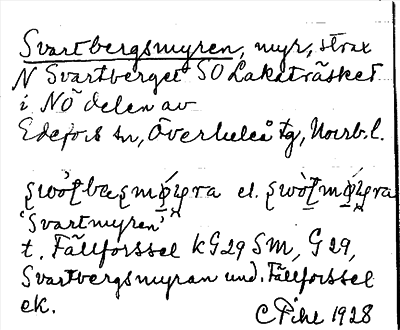 Svartbergsmyren, myr, strax
N Svartberget SO Lakaträsket
i NÖ delen av
Edefors sn, Överluleå tg, Norrb. l.
el.
'Svartmyren'
t. Fällforssel kG29 Sm, G29,
Svartbergsmyran und. Fällforssel
ek. C Pihl 1928